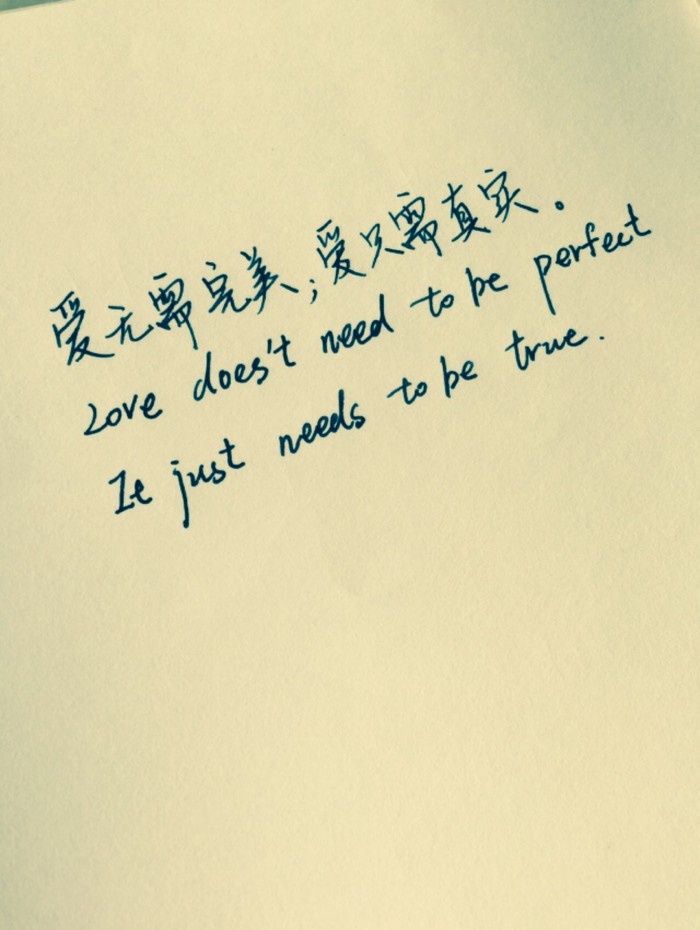 爱无需完美；爱只需真实。
Love does't need to be perfect
It just needs to be true.